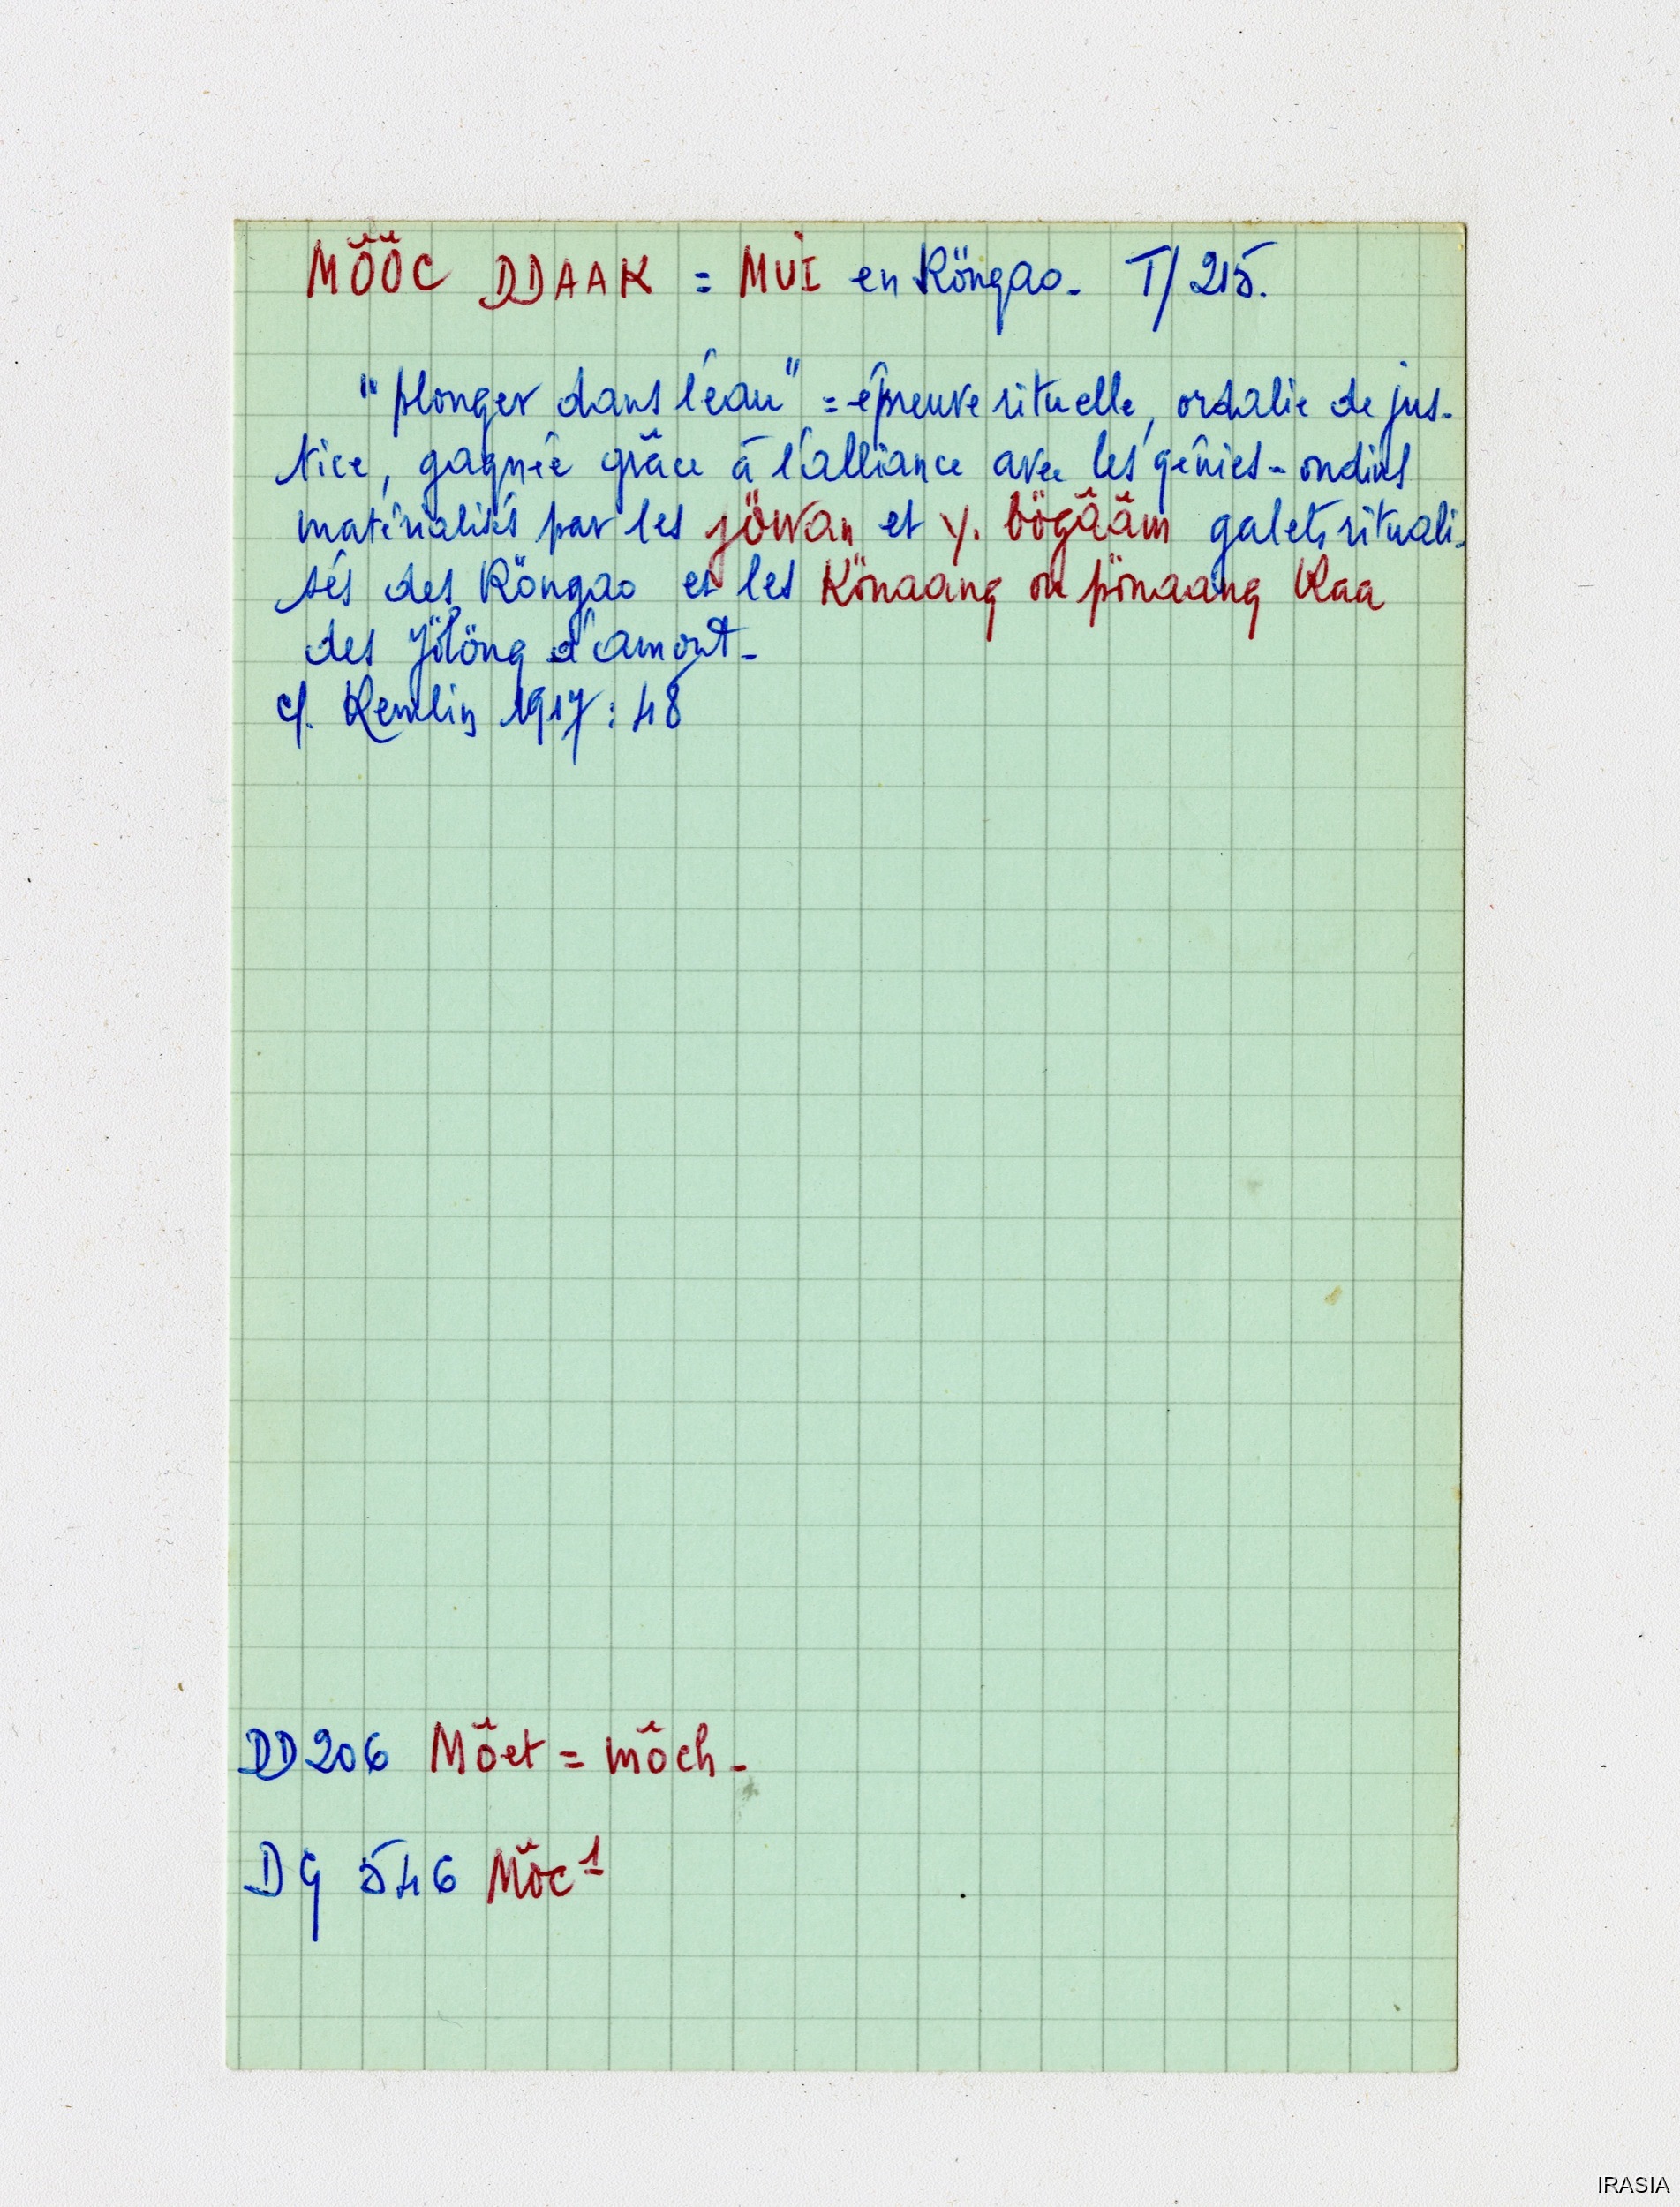 MÖ̆Ö̆C DDAAK = MUI en Röngao_ T/215.
"plonger dans l'eau" = épreuve rituelle, ordalie de jus-
tice, gagnée grâce à l'alliance avec les génies-ondins
matérialisés par les jöwan et y. bögăăm galets rituali-
sés des Röngao et les Könaang ou pönaang Klaa
des Jölöng d'amont_
cf. Kemlin 1917 : 48
DD 206 Mö̆et = mö̆ch_
DG 546 Mö̆c¹
IRASIA